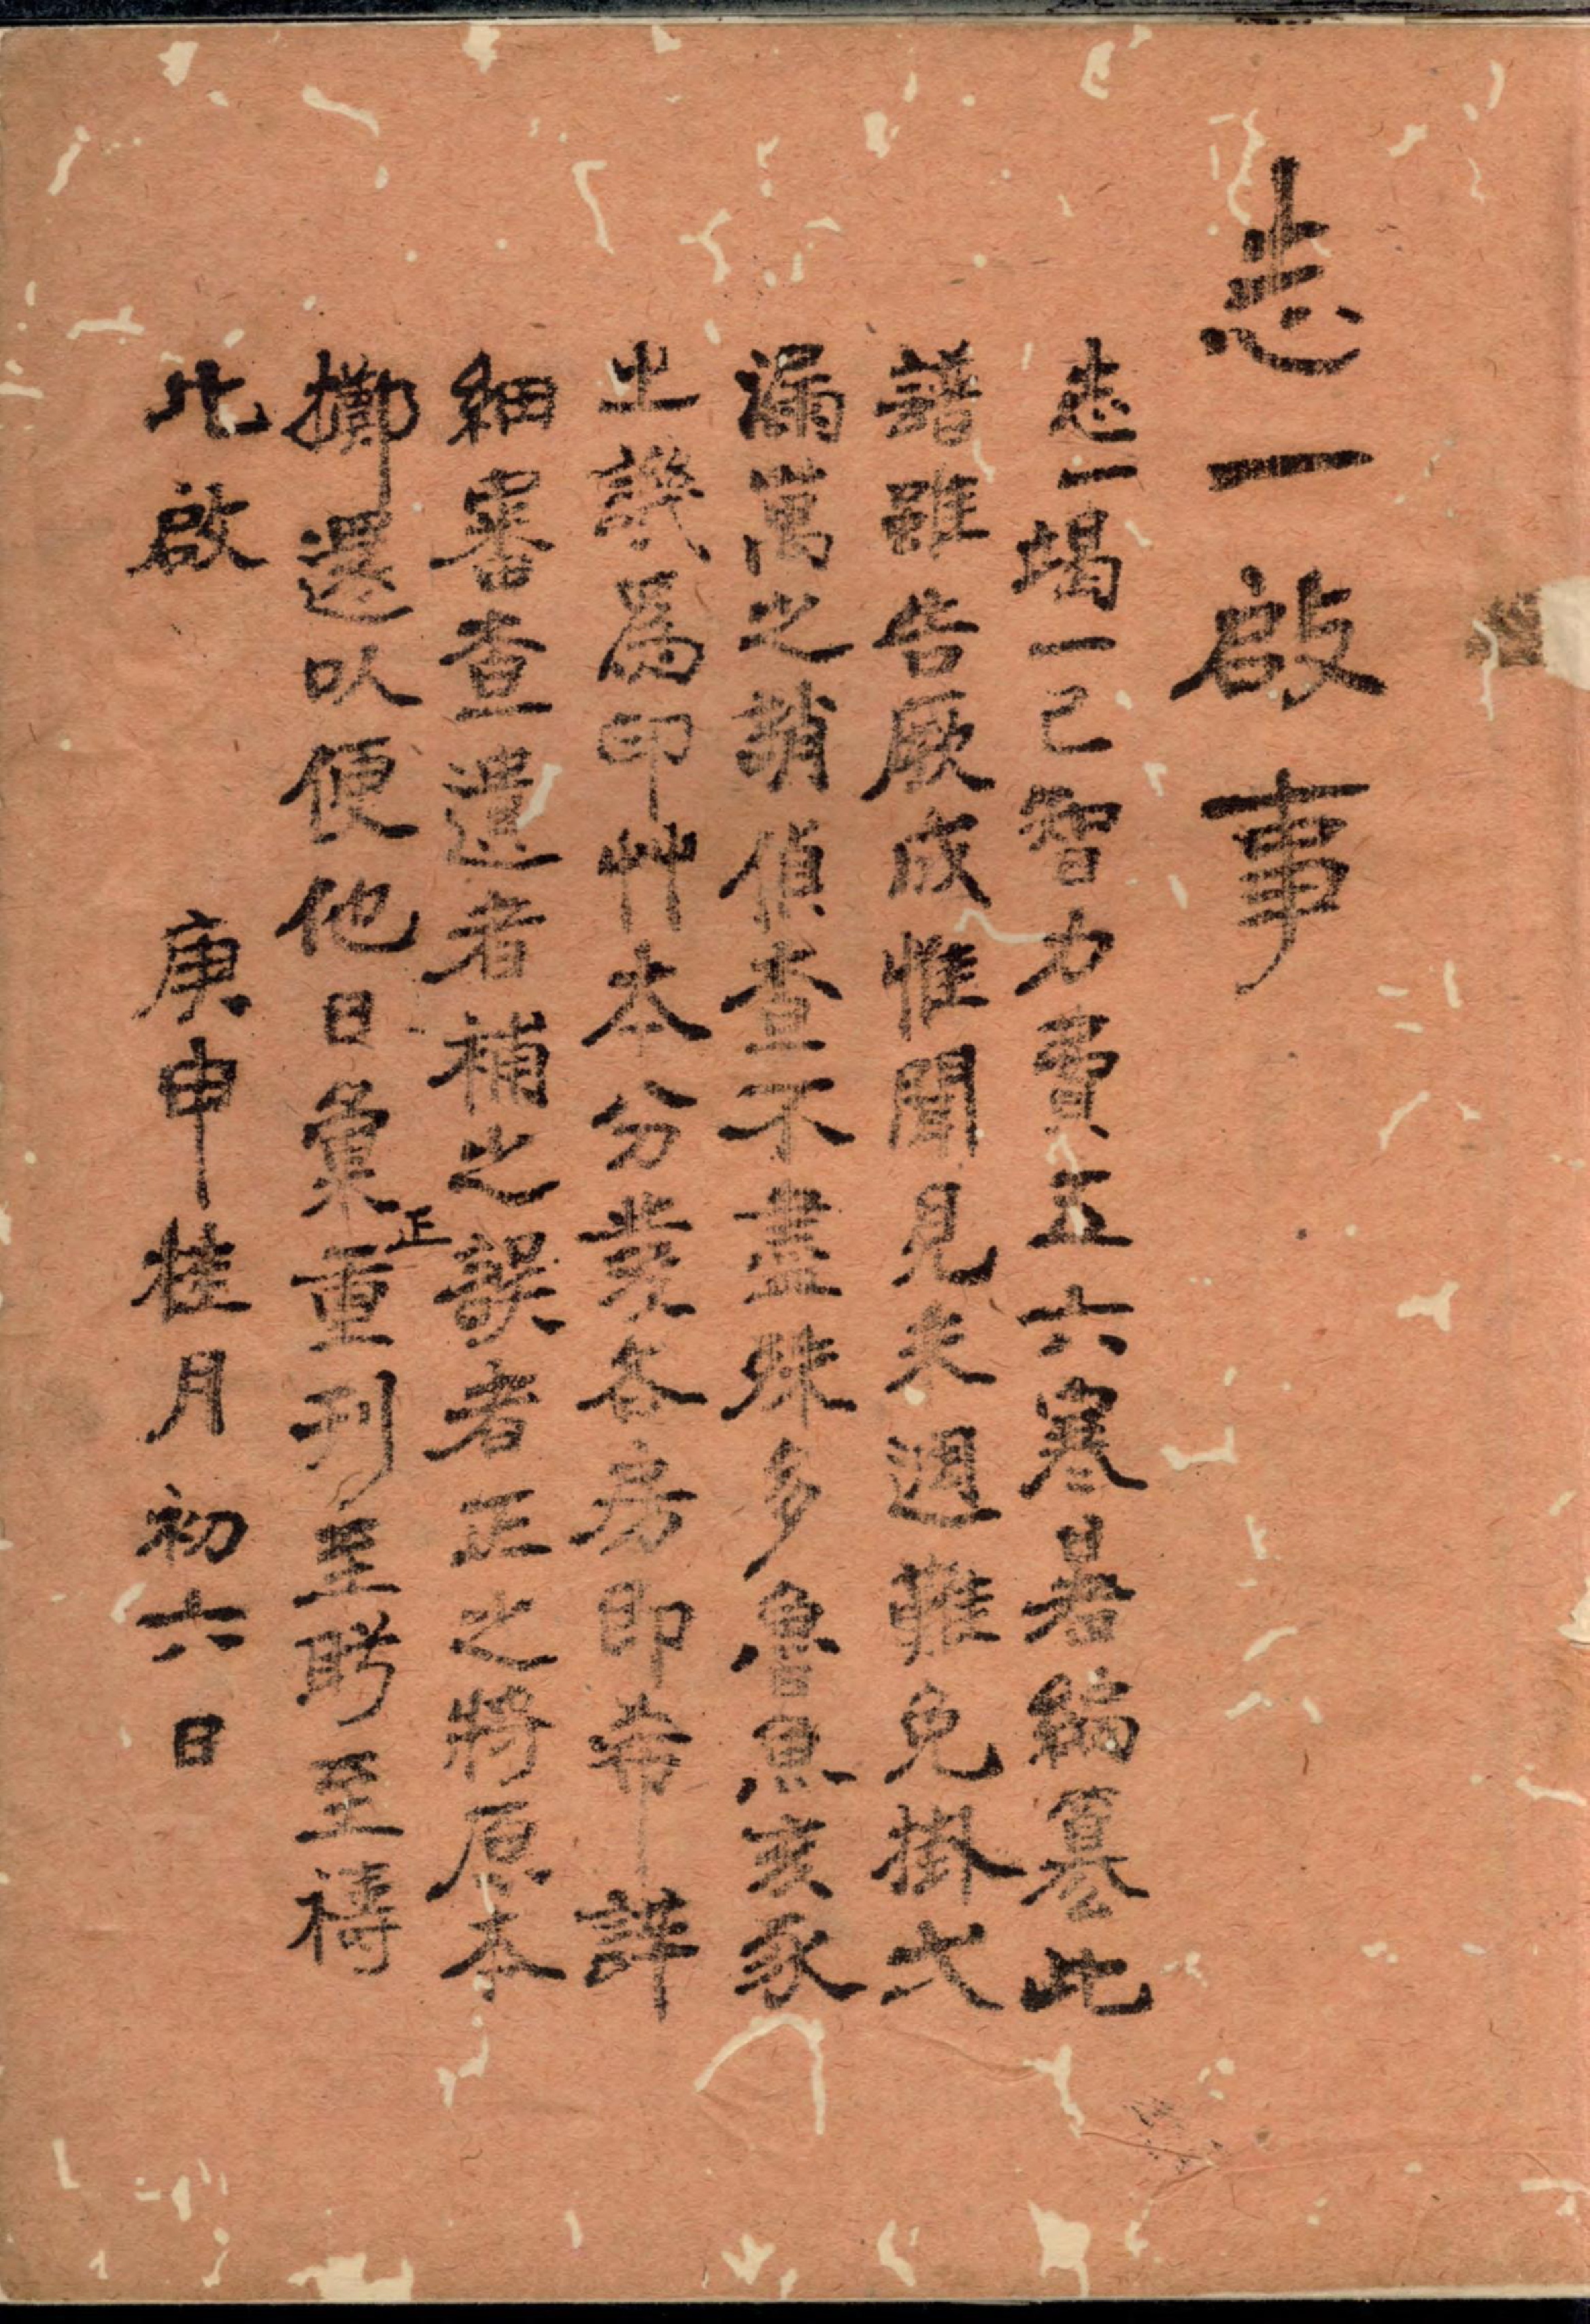 志一啟事
志一竭一己智力費五六寒暑編纂此
譜雖告厥成惟聞見未週難免掛弍
漏萬之誚偵查不盡殊多魯魚亥豕
之譏爲印艸本分發各房即希詳
細審查遺者補之誤者正之將原本
正
擲還以便他日彙重刊至盼至禱
此啟
庚申桂月初六日